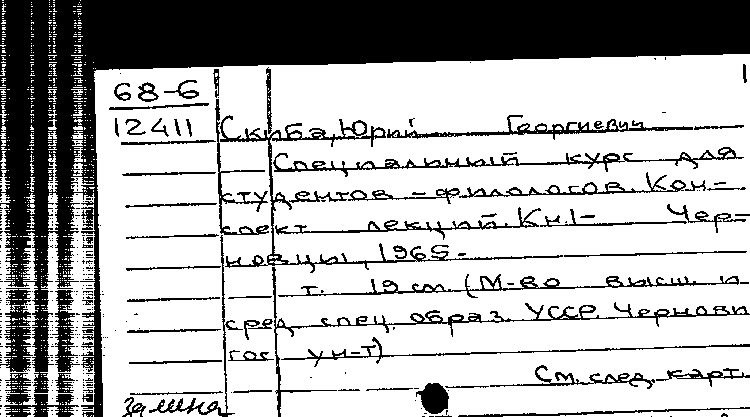 68-6
12411 Скиба, Юрий Георгиевич
Специальный курс для
студентов-филологов. Кон-
спект лекций. Кн.1- Чер-
новцы, 1965-
т. 19 см. (М-во высш. и
сред. спец. образ. УССР. Чернови
гос ун-т)
См. след. карт.